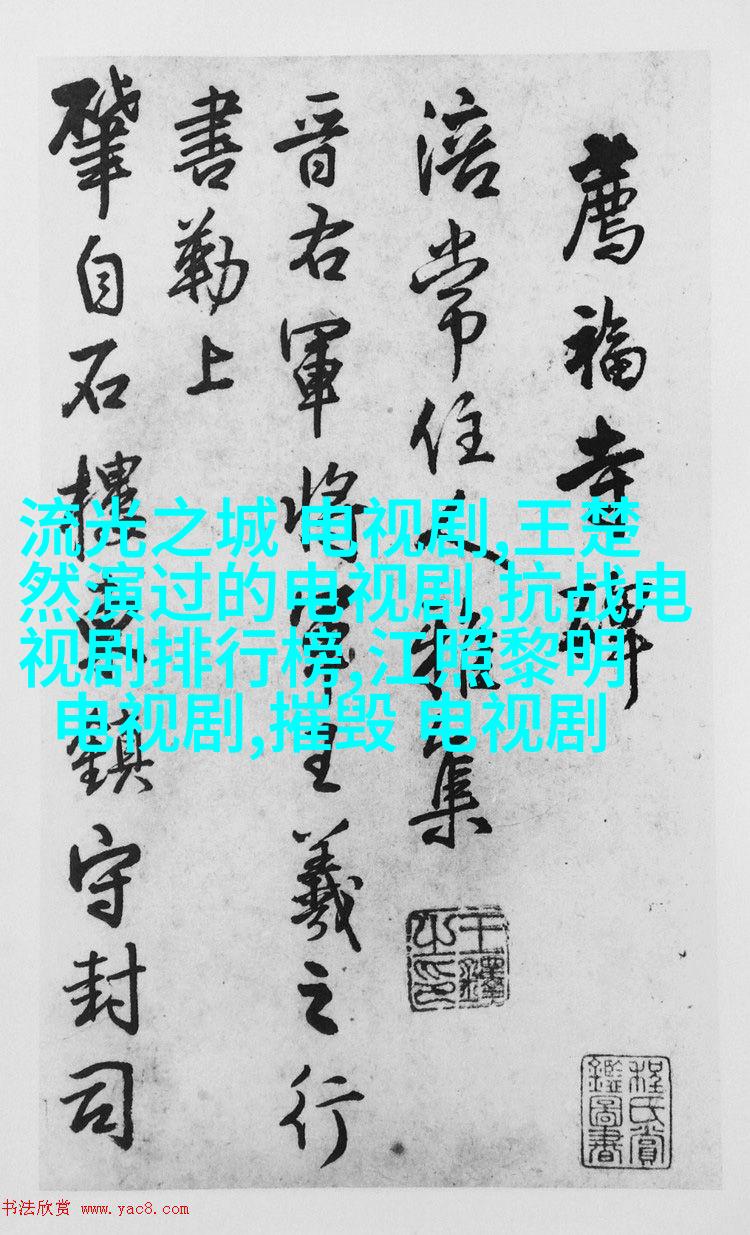 薦福寺碑
涪常住人雅集
晉右軍將軍王羲之行
書勒上
肇自石樓鎮守封司
王鐸之印
程氏賞鑑圖書
流光之城 电视剧,王楚
然演过的电视剧,抗战电
视剧排行榜,江照黎明
电视剧,摧毁 电视剧
书法欣赏 www.yac8.com